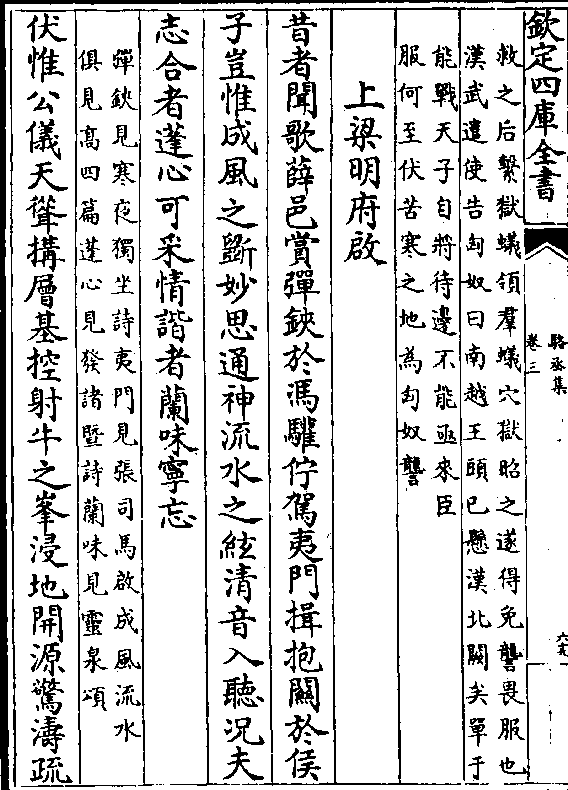 欽定四庫全書
駱丞集
卷三
救之后繫獄蟻領羣蟻穴獄昭之遂得免讋畏服也
漢武遣使告匈奴曰南越王頭已懸漢北闕矣單于
能戰天子自將待邊不能亟來臣
服何至伏苦寒之地為匈奴讋
上梁明府啟
昔者聞歌薛邑賞彈鋏於馮驩佇駕夷門揖抱關於侯
子豈惟成風之斵妙思通神流水之絃清音入聽況夫
志合者蓬心可采情諧者蘭味寧忘
彈鋏見寒夜獨坐詩夷門見張司馬啟成風流水
俱見高四篇蓬心見發諸暨詩蘭味見靈泉頌
伏惟公儀天聳搆層基控射牛之峯浸地開源驚濤疏